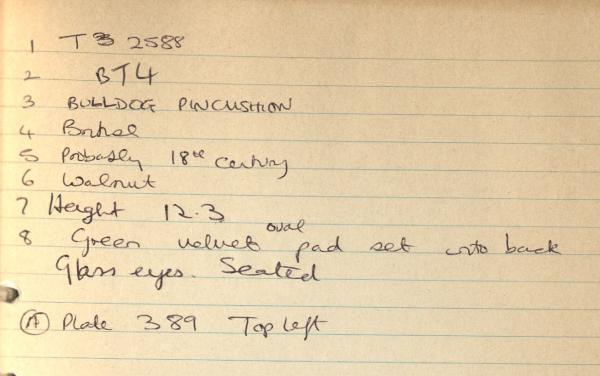 1 T3 2588
2 BT4
3 BULLDOG PINCUSHION
4 British
5 Probably 18th century
6 Walnut
7 Height 12.3
8 Green velvet oval pad set into back
Glass eyes. Seated
A Plate 389 Top left